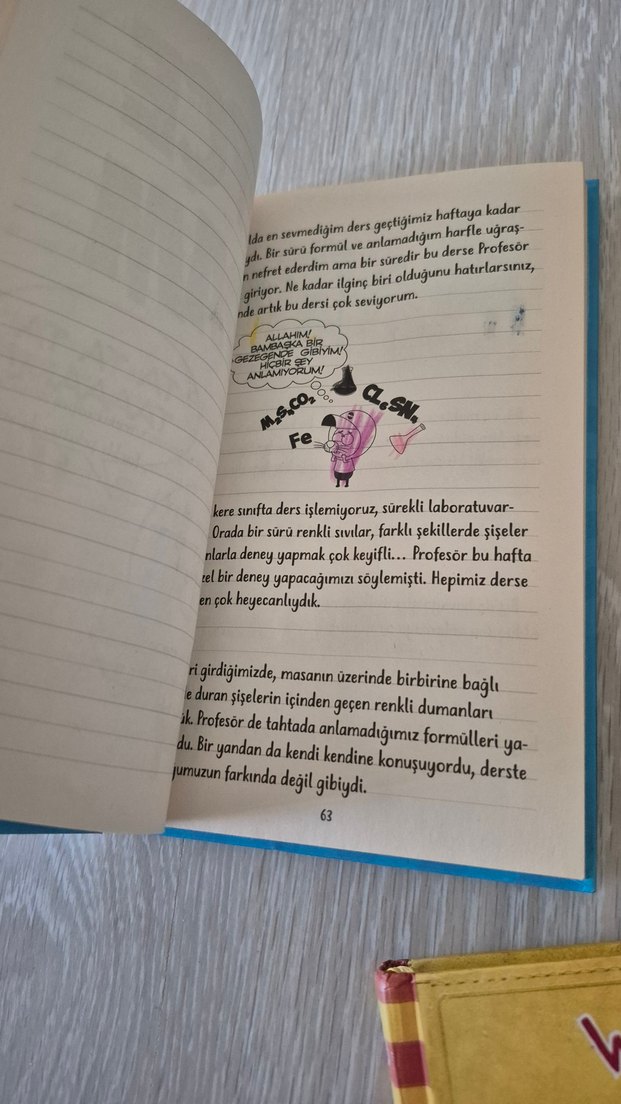 lda en sevmediğim ders geçtiğimiz haftaya kadar
ydı. Bir sürü formül ve anlamadığım harfle uğraş-
n nefret ederdim ama bir süredir bu derse Profesör
giriyor. Ne kadar ilginç biri olduğunu hatırlarsınız,
nde artık bu dersi çok seviyorum.
ALLAHIM!
BAMBAŞKA BİR
GEZEGENDE GİBİYİM!
HİÇBİR ŞEY
ANLAMIYORUM!
Fe
kere sınıfta ders işlemiyoruz, sürekli laboratuvar-
Orada bir sürü renkli sıvılar, farklı şekillerde şişeler
nlarla deney yapmak çok keyifli... Profesör bu hafta
zel bir deney yapacağımızı söylemişti. Hepimiz derse
en çok heyecanlıydık.
ri girdiğimizde, masanın üzerinde birbirine bağlı
e duran şişelerin içinden geçen renkli dumanları
ük. Profesör de tahtada anlamadığımız formülleri ya-
du. Bir yandan da kendi kendine konuşuyordu, derste
umuzun farkında değil gibiydi.
63